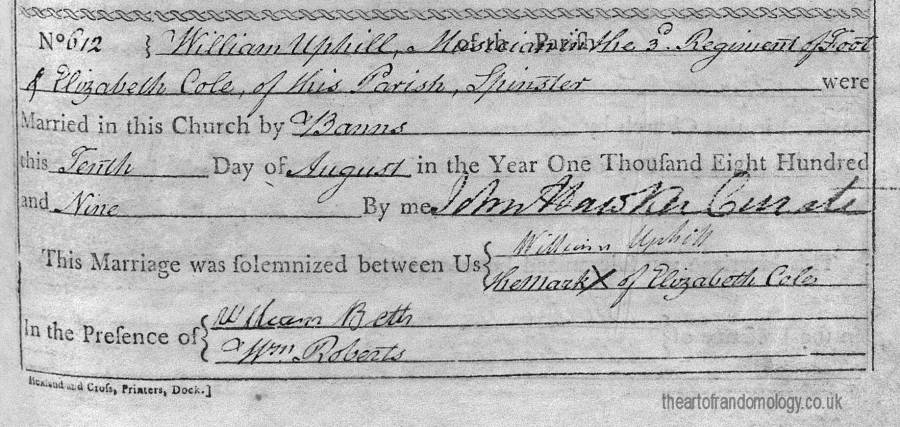 No 612 { William Uphill, Musician in the 3d. Regiment of Foot
& Elizabeth Cole, of this Parish, Spinster were
Married in this Church by Banns
this Tenth Day of August in the Year One Thouſand Eight Hundred
and Nine By me John Hawker Curate
This Marriage was ſolemnized between Us { William Uphill
the Mark X of Elizabeth Cole
In the Presence of { William Beth
Wm. Roberts
Hoxland and Croſs, Printers, Dock.]
theartofrandomology.co.uk